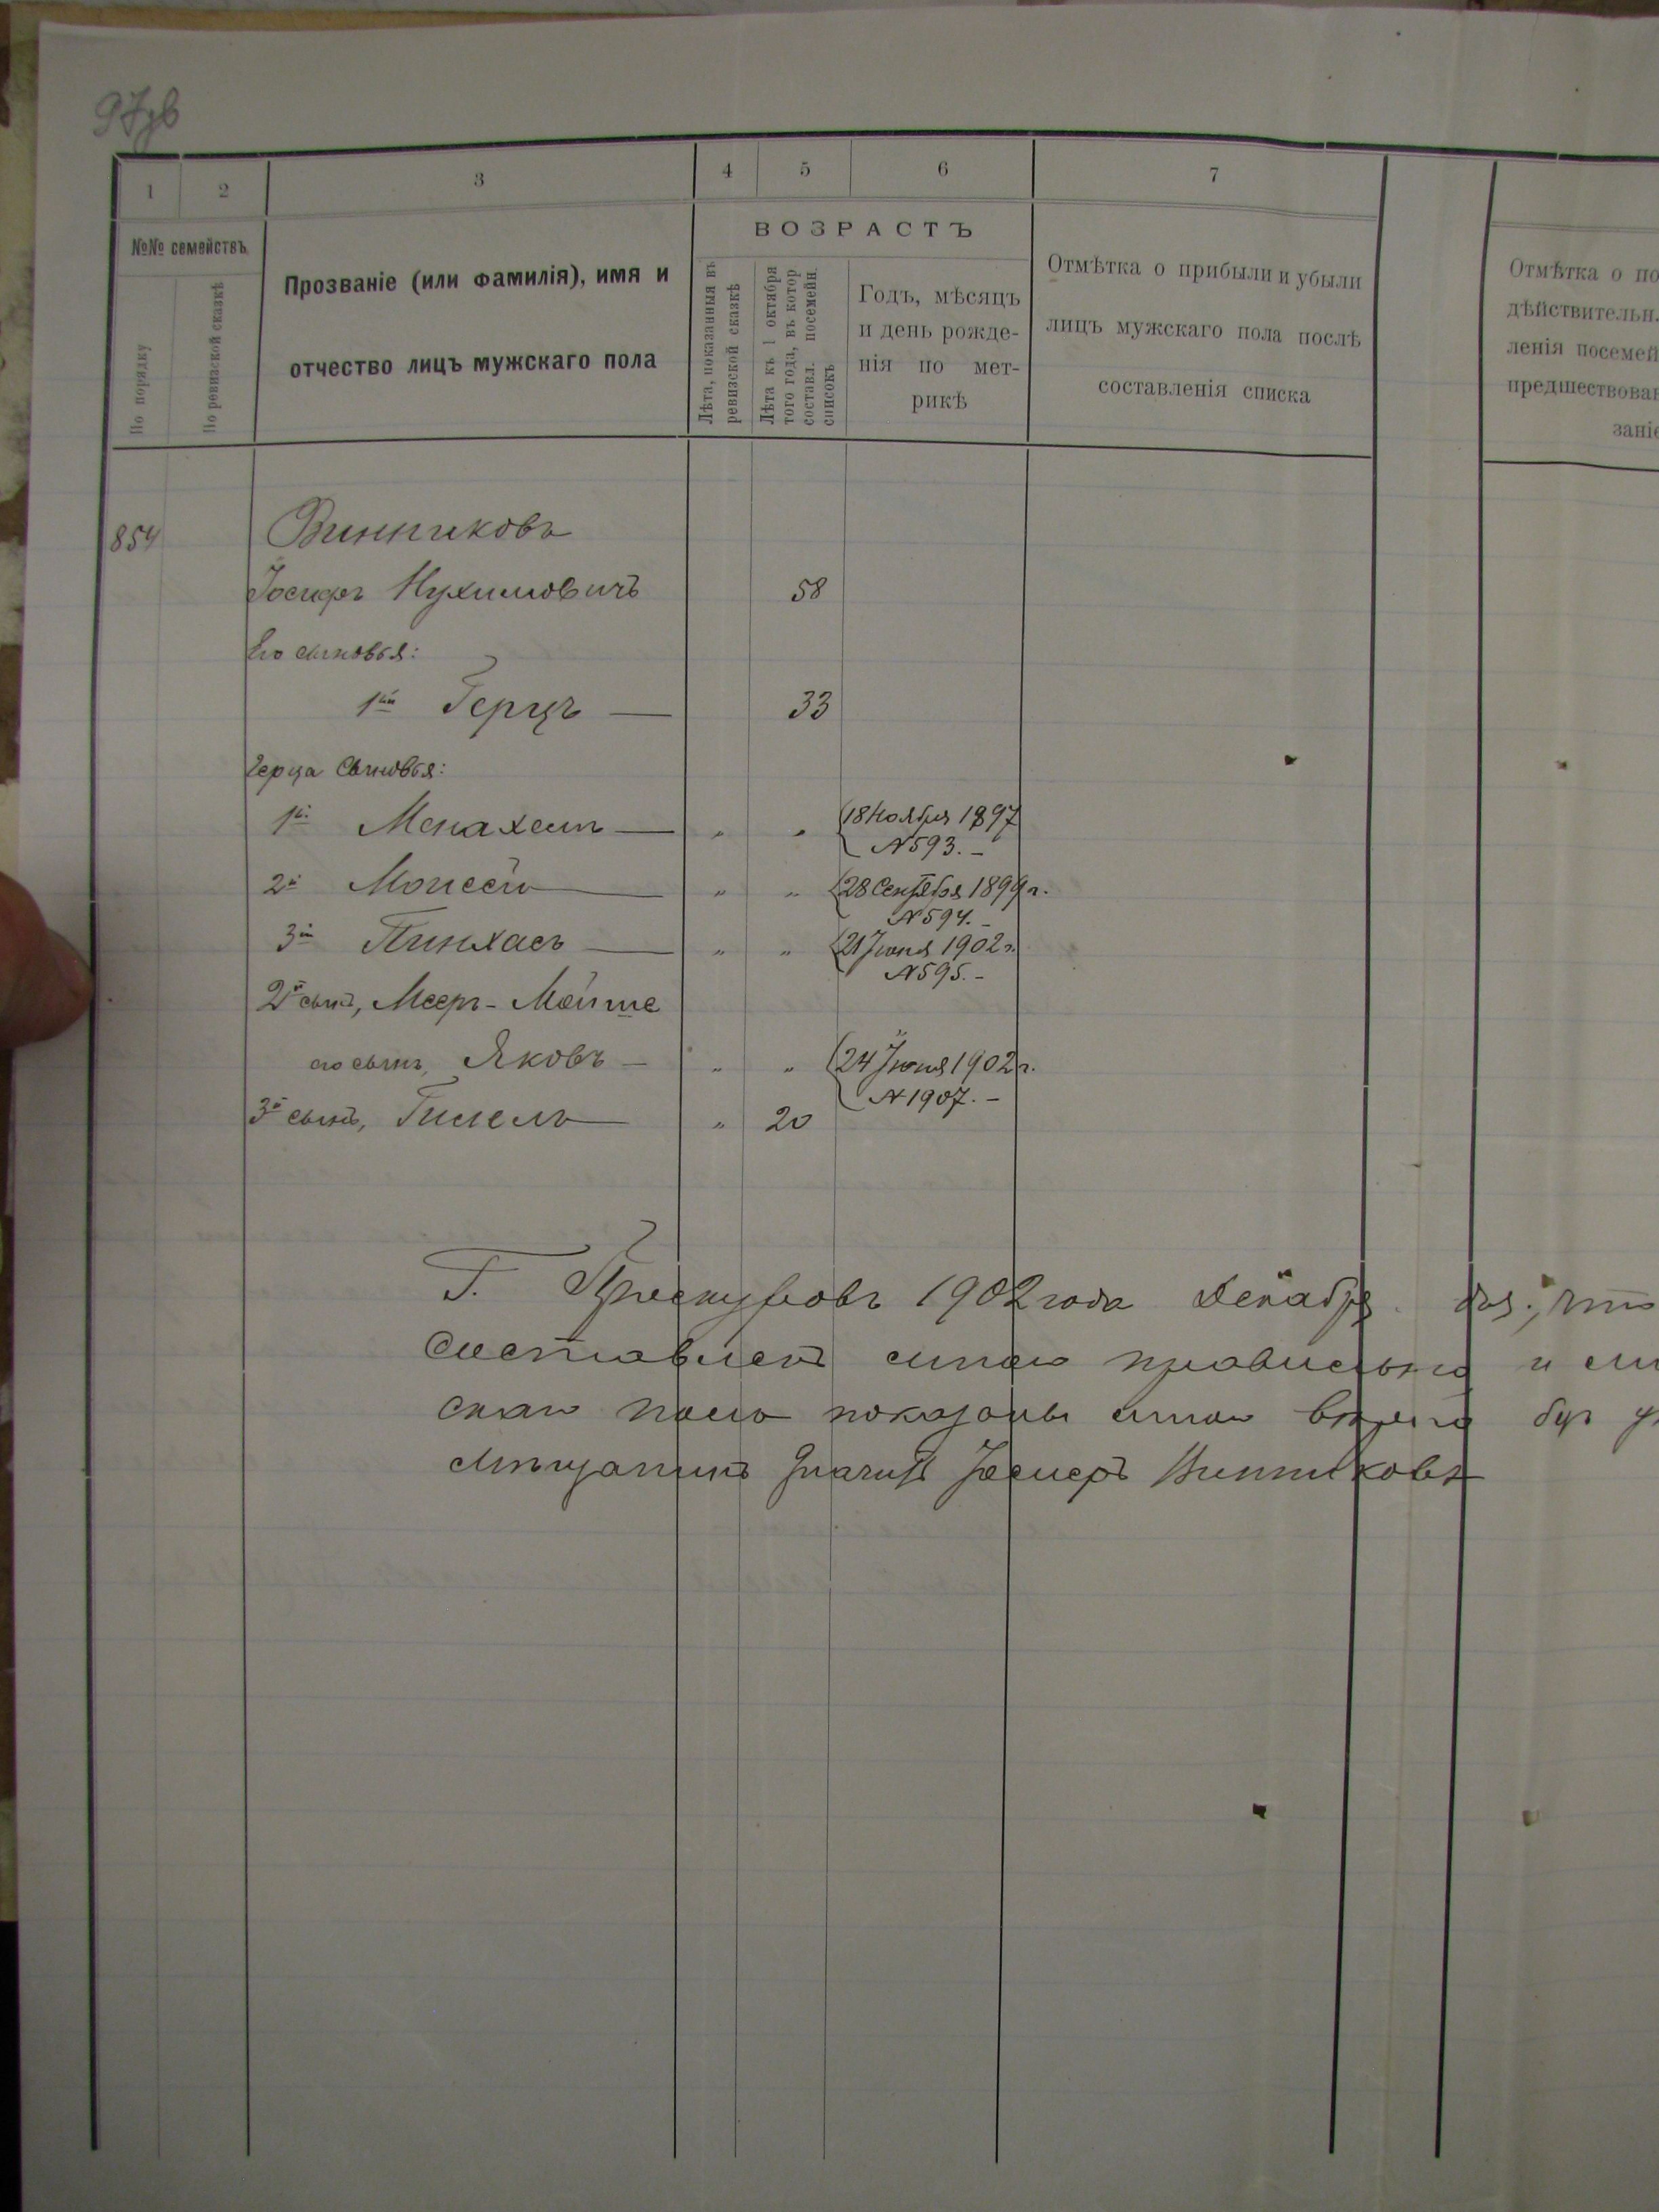 97зв
1 2 3 4 5 6 7
№№ семействъ
По порядку
По ревизской сказкѣ
Прозваніе (или фамилія), имя и
отчество лицъ мужскаго пола
ВОЗРАСТЪ
Лѣта, показанныя въ
ревизской сказкѣ
Лѣта къ 1 октября
того года, въ котор
составл. посемейн.
списокъ
Годъ, мѣсяцъ
и день рожде-
нія по мет-
рикѣ
Отмѣтка о прибыли и убыли
лицъ мужскаго пола послѣ
составленія списка
Отмѣтка о по
дѣйствительн.
ленія посемей
предшествован
заніе
854 Винниковъ
Іосифъ Нухимовичъ 58
Его сыновья:
1й Герцъ — 33
Герца сыновья:
1й Менахемъ — " " 18 Ноября 1897
N 593. –
2й Моисей — " " 28 Сентября 1899 г.
N 594. –
3й Пинхасъ — " " 21 Іюня 1902 г.
N 595. –
2й сынъ, Мееръ-Мойше
его сынъ, Яковъ — " " 24 Іюня 1902 г.
N 1907. –
3й сынъ, Гилель — " 20
Г. Проскуровъ 1902 года Декабря что
составленъ правильно и
показаны
мѣщанинъ Іосифъ Винниковъ